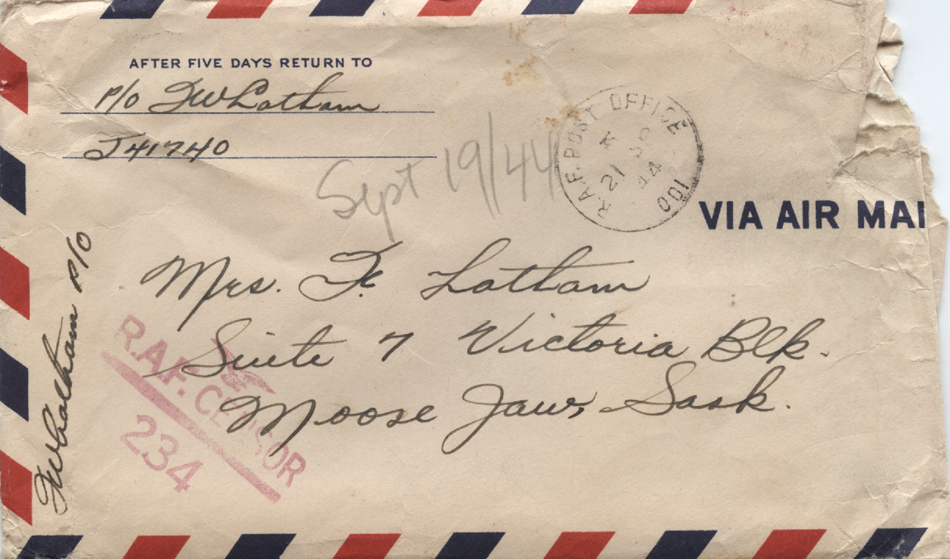 AFTER FIVE DAYS RETURN TO
P/O F W Latham
J41740
Sept 19/44
R.A.F. POST OFFICE 001
21 SP
44
VIA AIR MAI
Mrs. F. Latham
Suite 7 Victoria Blk.
Moose Jaw, Sask.
R.A.F. CENSOR
234
FWLatham P/O